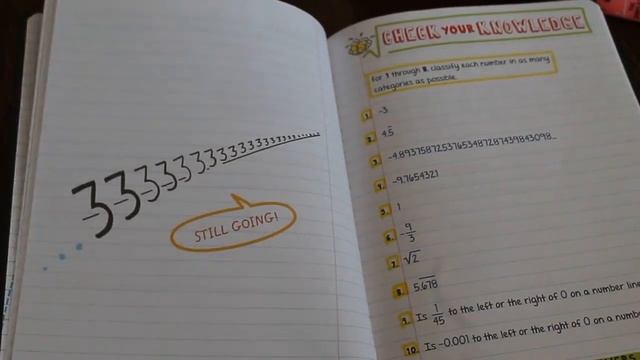 3333333333333333333
STILL GOING!
CHECK YOUR KNOWLEDGE
For 1 through 8, classify each number in as many
categories as possible.
1. -3
2. 4.5̅
3. -4.89375872537653487287439843098...
4. -9.7654321
5. 1
6. -9/3
7. √2
8. 5.6̅7̅8̅
9. Is 1/45 to the left or the right of 0 on a number line
10. Is -0.001 to the left or the right of 0 on a